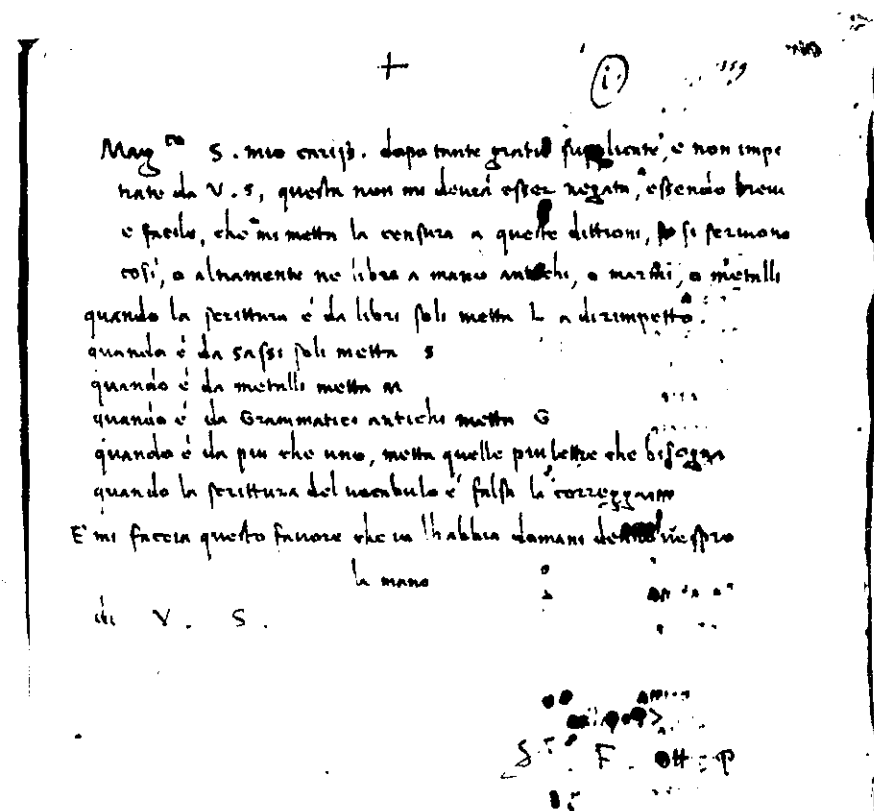 +
i
559
Mag.co S. mio cariss. dopo tante gratie supplicate, e non impe
trate da V. S, questa non mi deverà esser negata, essendo breve
e facile, che mi metta la censura a queste dittioni, se si scrivono
così, o altramente ne libri a mano antichi, o marmi, o metalli
quando la scrittura è da libri soli metta L a dirimpetto.
quando è da sassi soli metta S
quando è da metalli metta M
quando è da Grammatici antichi metta G
quando è da piu che uno, metta quelle piu lettere che bisogna
quando la scrittura del vocabulo è falsa la correggan
E mi faccia questo favore che io l'habbia domani vespro
la mano
di V. S.
S. F.